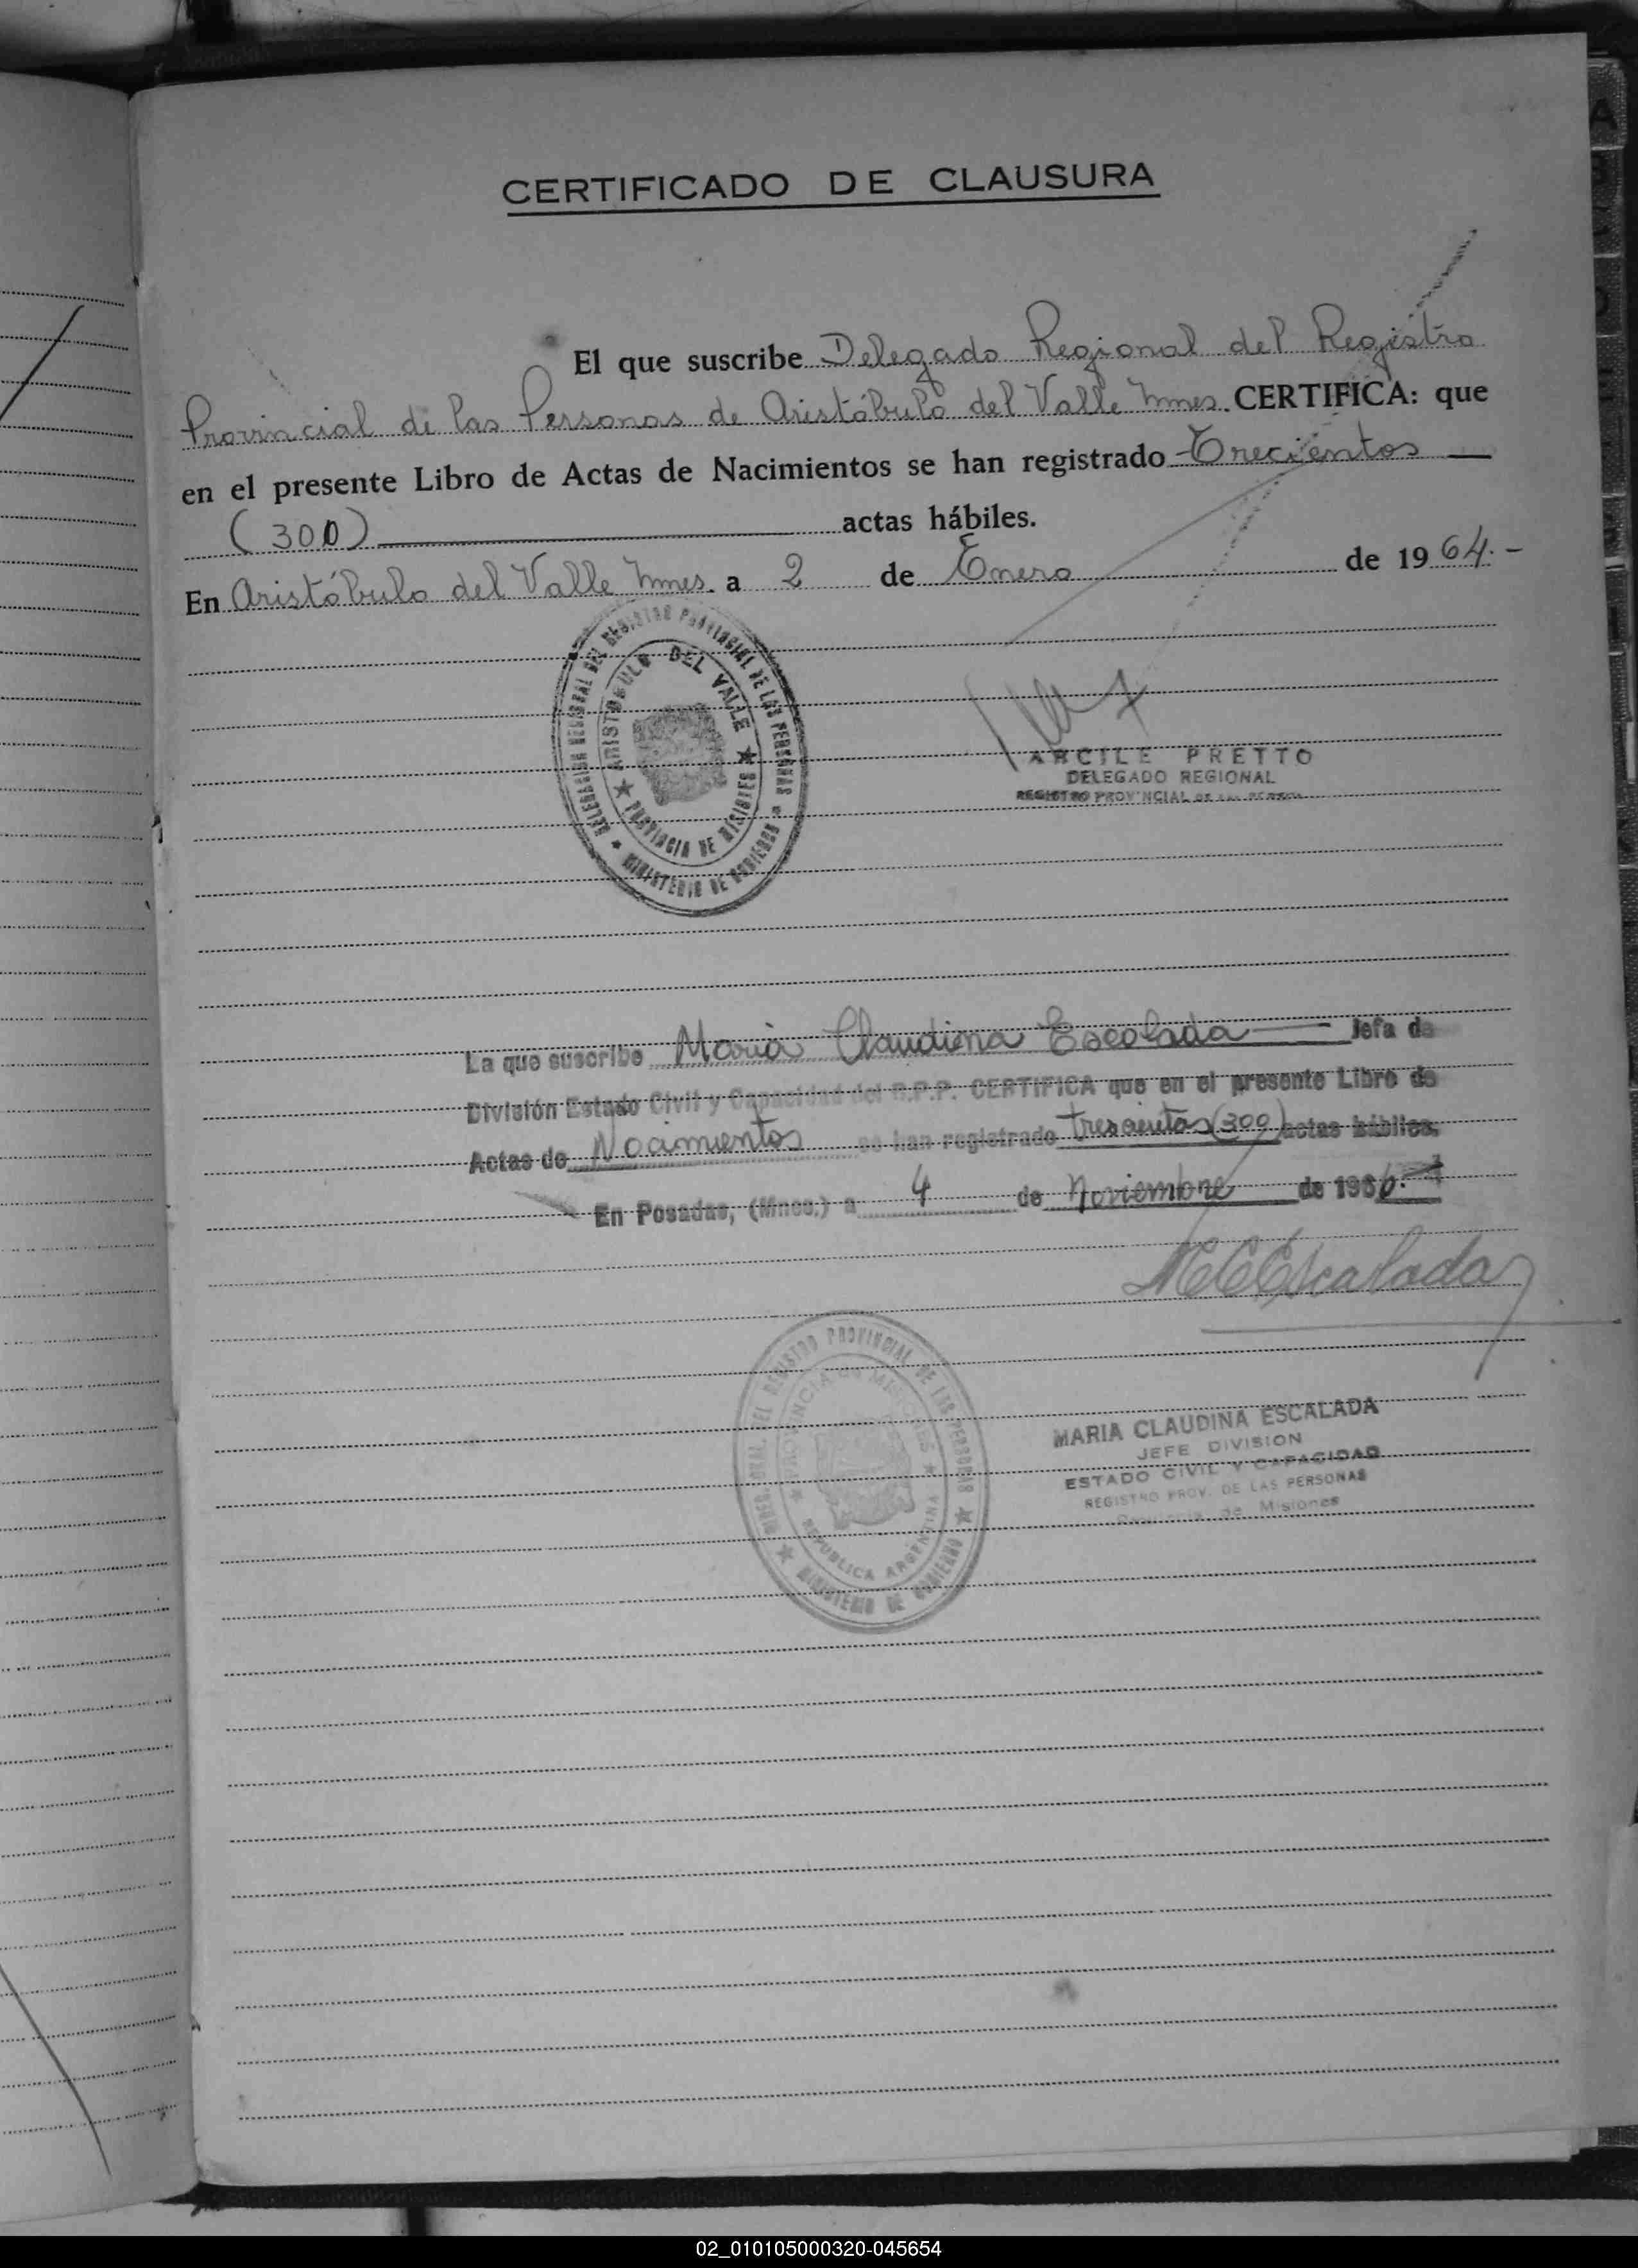 CERTIFICADO DE CLAUSURA
El que suscribe Delegado Regional del Registro
Provincial de las Personas de Aristóbulo del Valle Mnes. CERTIFICA: que
en el presente Libro de Actas de Nacimientos se han registrado Trecientos
(300) actas hábiles.
En Aristóbulo del Valle Mnes. a 2 de Enero de 1964.-
DELEGACION REGIONAL DEL REGISTRO PROVINCIAL DE LAS PERSONAS
ARISTOBULO DEL VALLE
PROVINCIA DE MISIONES
MINISTERIO DE GOBIERNO
ARCILE PRETTO
DELEGADO REGIONAL
REGISTRO PROVINCIAL DE LAS PERSONAS
La que suscribe Maria Claudina Escalada Jefa de
División Estado Civil y Capacidad del R.P.P. CERTIFICA que en el presente Libro de
Actas de Nacimientos se han registrado trescientas (300) actas hábiles.
En Posadas, (Mnes.) a 4 de Noviembre de 1966.-
MCEscalada
REGISTRO PROVINCIAL DE LAS PERSONAS
PROVINCIA DE MISIONES
REPUBLICA ARGENTINA
MINISTERIO DE GOBIERNO
MARIA CLAUDINA ESCALADA
JEFE DIVISION
ESTADO CIVIL Y CAPACIDAD
REGISTRO PROV. DE LAS PERSONAS
Provincia de Misiones
02_010105000320-045654